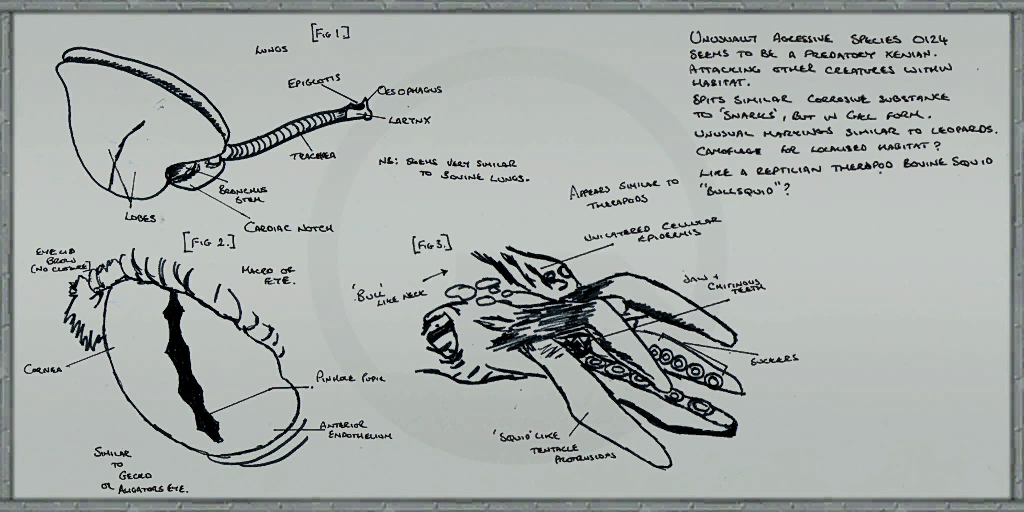 [FIG 1]
LUNGS
EPIGLOTIS
OESOPHAGUS
LARYNX
TRACHEA
NB: SEEMS VERY SIMILAR
TO BOVINE LUNGS.
BRONCHUS
STEM
CARDIAC NOTCH
LOBES
UNUSUALLY AGRESSIVE SPECIES 0124
SEEMS TO BE A PREDATORY XENIAN.
ATTACKING OTHER CREATURES WITHIN
HABITAT.
SPITS SIMILAR CORROSIVE SUBSTANCE
TO 'SNARKS', BUT IN GELL FORM.
UNUSUAL MARKINGS SIMILAR TO LEOPARDS.
CAMOFLAGE FOR LOCALISED HABITAT?
LIKE A REPTICIAN THERAPOD BOVINE SQUID
"BULLSQUID"?
[FIG 2.]
EYELID
BROW
[NO CLOSURE]
MACRO OF
EYE.
CORNEA
PINHOLE PUPIL
ANTERIOR
ENDOTHELIUM
SIMILAR
TO
GECKO
OR ALIGATORS EYE.
[FIG 3.]
APPEARS SIMILAR TO
THERAPODS
UNILATERED CELLULAR
EPIDERMIS
'BULL'
LIKE NECK
JAW +
CHITINOUS
TEETH
SUCKERS
'SQUID' LIKE
TENTACLE
PROTRUSIONS